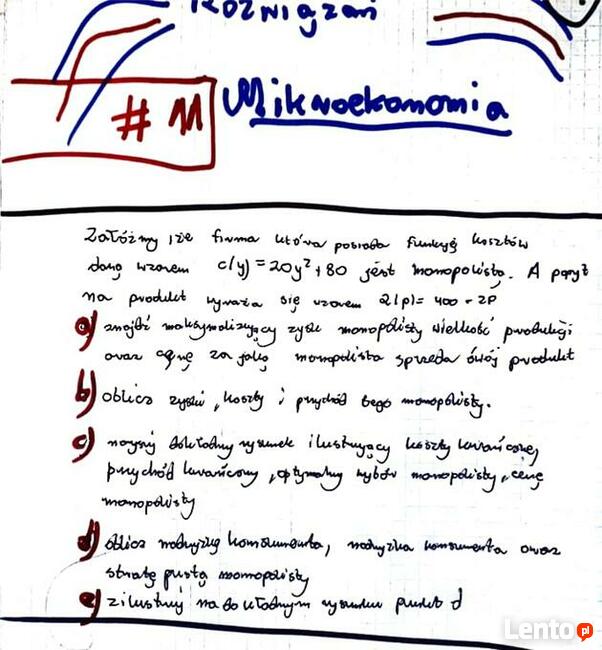 Rozwiązań
# 11 Mikroekonomia
Załóżmy że firma która posiada funkcję kosztów
daną wzorem c(y) = 20y² + 80 jest monopolistą. A popyt
na produkt wyraża się wzorem Q(p) = 400 - 2P
a) znajdź maksymalizujący zysk monopolisty wielkość produkcji
oraz cenę za jaką monopolista sprzeda swój produkt
b) oblicz zysk, koszty i przychód tego monopolisty.
c) narysuj dokładny rysunek ilustrujący koszty krańcowe,
przychód krańcowy, optymalny wybór monopolisty, cenę
monopolisty
d) oblicz nadwyżkę konsumenta, nadwyżka konsumenta oraz
stratę pustą monopolisty
e) zilustruj na dokładnym rysunku punkt d
Lento.pl